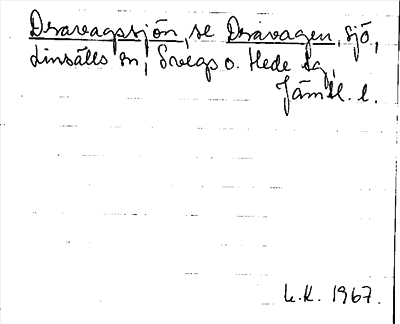 Dravagssjön, se Dravagen, sjö,
Linsälls sn, Svegs o. Hede tg,
Jämtl. l.
L.K. 1967.